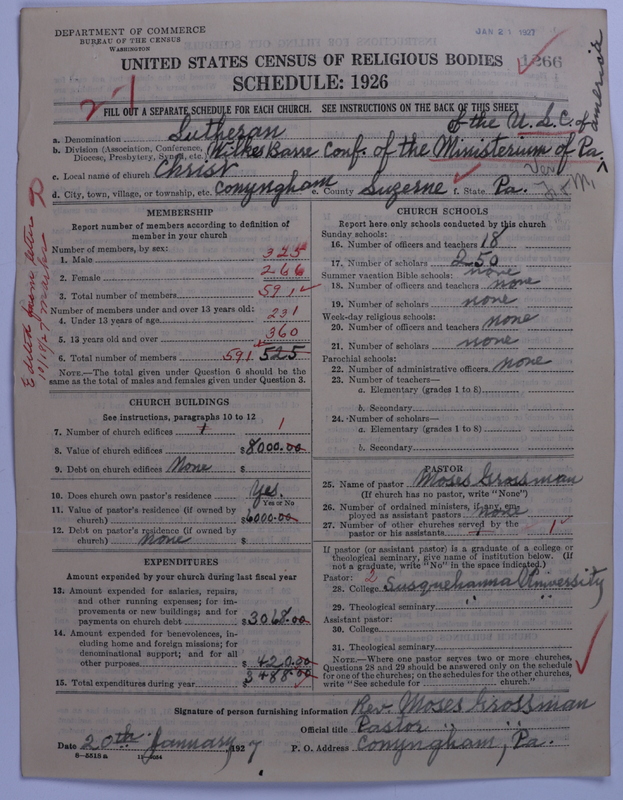 DEPARTMENT OF COMMERCE
BUREAU OF THE CENSUS
WASHINGTON
JAN 21 1927
UNITED STATES CENSUS OF RELIGIOUS BODIES
1266
SCHEDULE: 1926
27
FILL OUT A SEPARATE SCHEDULE FOR EACH CHURCH. SEE INSTRUCTIONS ON THE BACK OF THIS SHEET
a. Denomination Lutheran of the U. L. C. of America
b. Division (Association, Conference, Diocese, Presbytery, Synod, etc.) Wilkes Barre Conf. of the Ministerium of Pa.
c. Local name of church Christ
d. City, town, village, or township, etc. Conyngham e. County Luzerne f. State Pa.
Edited from letters
MEMBERSHIP
Report number of members according to definition of member in your church
Number of members, by sex:
1. Male 325
2. Female 266
3. Total number of members 591
Number of members under and over 13 years old:
4. Under 13 years of age 231
5. 13 years old and over 360
6. Total number of members 591 525
NOTE.—The total given under Question 6 should be the same as the total of males and females given under Question 3.
CHURCH BUILDINGS
See instructions, paragraphs 10 to 12
7. Number of church edifices 1 1
8. Value of church edifices $8000.00
9. Debt on church edifices None $
10. Does church own pastor's residence Yes.
Yes or No
11. Value of pastor's residence (if owned by church) $6000.00
12. Debt on pastor's residence (if owned by church) None $
EXPENDITURES
Amount expended by your church during last fiscal year
13. Amount expended for salaries, repairs, and other running expenses; for improvements or new buildings; and for payments on church debt $3068.00
14. Amount expended for benevolences, including home and foreign missions; for denominational support; and for all other purposes $420.00
15. Total expenditures during year $3488.00
CHURCH SCHOOLS
Report here only schools conducted by this church
Sunday schools:
16. Number of officers and teachers 18
17. Number of scholars 250
Summer vacation Bible schools: none
18. Number of officers and teachers none
19. Number of scholars none
Week-day religious schools:
20. Number of officers and teachers none
21. Number of scholars none
Parochial schools:
22. Number of administrative officers none
23. Number of teachers—
a. Elementary (grades 1 to 8)
b. Secondary
24. Number of scholars—
a. Elementary (grades 1 to 8)
b. Secondary
PASTOR
25. Name of pastor Moses Grossman
(If church has no pastor, write "None")
26. Number of ordained ministers, if any, employed as assistant pastors none
27. Number of other churches served by the pastor or his assistants 1 1
If pastor (or assistant pastor) is a graduate of a college or theological seminary, give name of institution below. (If not a graduate, write "No" in the space indicated.)
Pastor: 2
28. College Susquehanna University
29. Theological seminary " "
Assistant pastor:
30. College
31. Theological seminary
NOTE.—Where one pastor serves two or more churches, Questions 28 and 29 should be answered only on the schedule for one of the churches; on the schedules for the other churches, write "See schedule for church."
Signature of person furnishing information Rev. Moses Grossman
Official title Pastor " "
Date 20th January, 1927 P. O. Address Conyngham, Pa.
8—5518a 11—9054